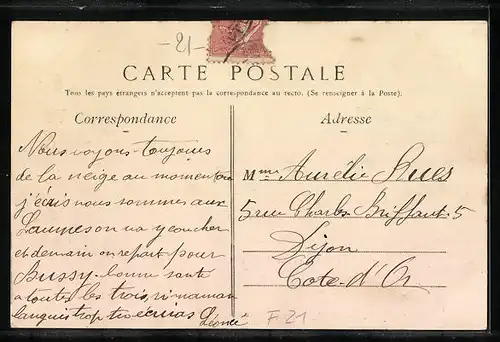 -21-
CARTE POSTALE
Tous les pays étrangers n'acceptent pas la correspondance au recto. (Se renseigner à la Poste).
Correspondance
Adresse
Nous voyons toujours
de la neige au moment ou
j'écris nous sommes aux
on va y coucher
et demain on repart pour
Bussy. bonne santé
a toutes les trois, si maman
languis trop tu écriras Léonce
Mme Aurélie Rues
5 rue Charles Briffaut. 5
Dijon
Cote-d'Or
F21